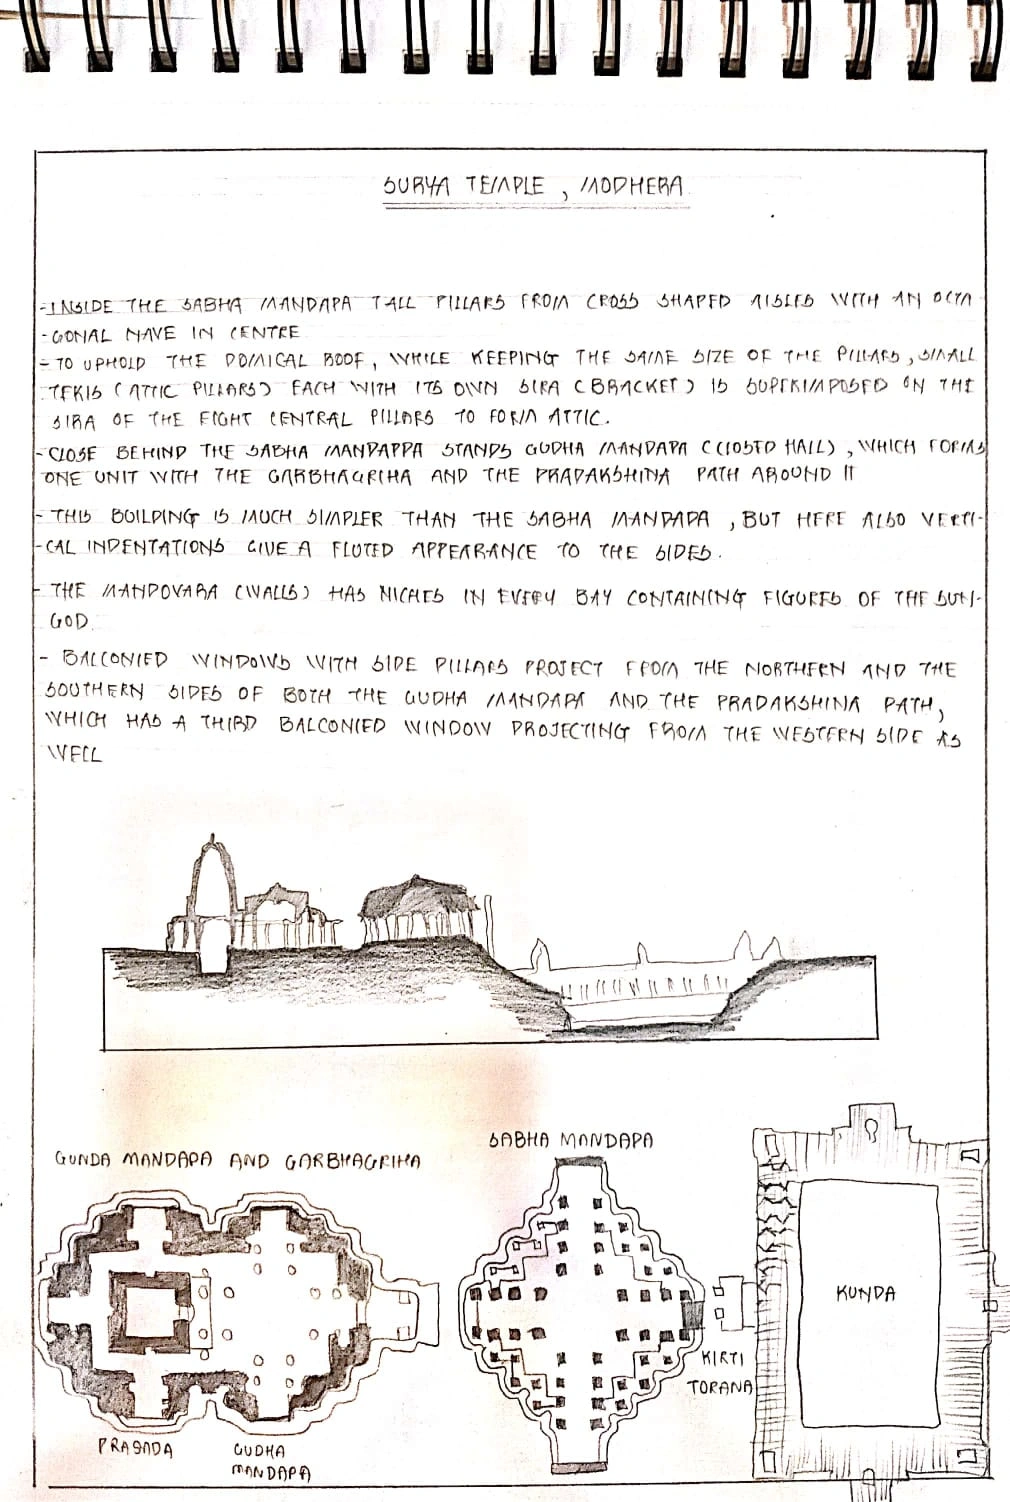 SURYA TEMPLE, MODHERA
- INSIDE THE SABHA MANDAPA TALL PILLARS FROM CROSS SHAPED AISLES WITH AN OCTA
- GONAL NAVE IN CENTRE
- TO UPHOLD THE DOMICAL ROOF, WHILE KEEPING THE SAME SIZE OF THE PILLARS, SMALL
TEKIS (ATTIC PILLARS) EACH WITH ITS OWN SIRA (BRACKET) IS SUPERIMPOSED ON THE
SIRA OF THE EIGHT CENTRAL PILLARS TO FORM ATTIC.
- CLOSE BEHIND THE SABHA MANDAPPA STANDS GUDHA MANDAPA (CLOSED HALL), WHICH FORMS
ONE UNIT WITH THE GARBHAGRIHA AND THE PRADAKSHINA PATH AROUND IT
- THIS BUILDING IS MUCH SIMPLER THAN THE SABHA MANDAPA, BUT HERE ALSO VERTI-
- CAL INDENTATIONS GIVE A FLUTED APPEARANCE TO THE SIDES.
- THE MANDOVARA (WALLS) HAS NICHES IN EVERY BAY CONTAINING FIGURES OF THE SUN-
GOD.
- BALCONIED WINDOWS WITH SIDE PILLARS PROJECT FROM THE NORTHERN AND THE
SOUTHERN SIDES OF BOTH THE GUDHA MANDAPA AND THE PRADAKSHINA PATH,
WHICH HAS A THIRD BALCONIED WINDOW PROJECTING FROM THE WESTERN SIDE AS
WELL
SABHA MANDAPA
GUNDA MANDAPA AND GARBHAGRIHA
KUNDA
KIRTI
TORANA
PRASADA
GUDHA
MANDAPA